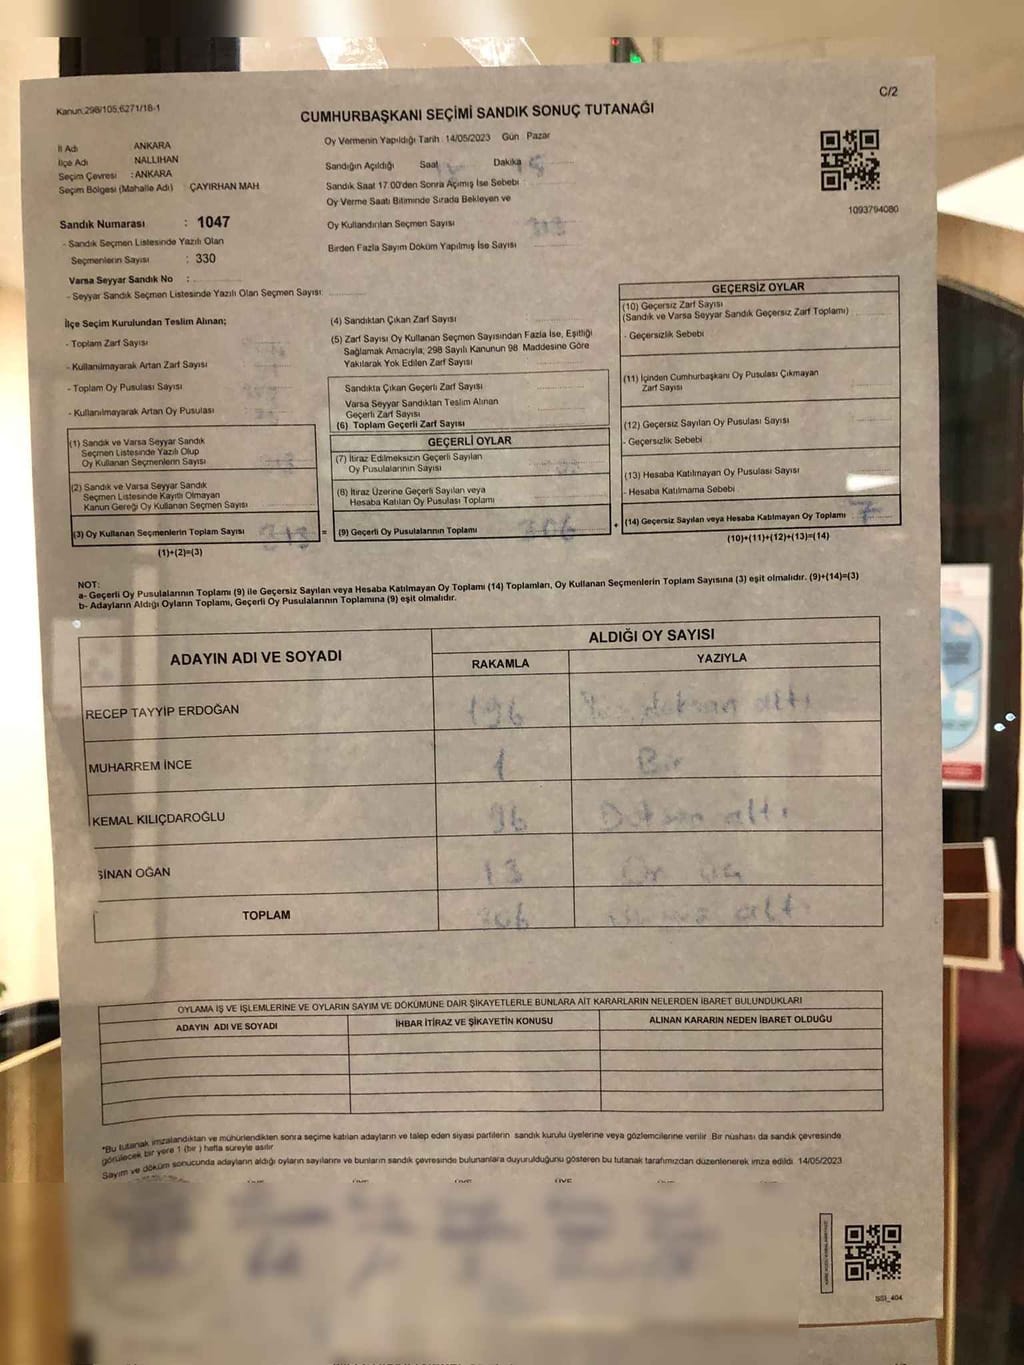 Kanun:298/105,6271/18-1
C/2
CUMHURBAŞKANI SEÇİMİ SANDIK SONUÇ TUTANAĞI
İl Adı ANKARA
İlçe Adı NALLIHAN
Seçim Çevresi : ANKARA
Seçim Bölgesi (Mahalle Adı) : ÇAYIRHAN MAH
Sandık Numarası : 1047
- Sandık Seçmen Listesinde Yazılı Olan
Seçmenlerin Sayısı : 330
Varsa Seyyar Sandık No :
- Seyyar Sandık Seçmen Listesinde Yazılı Olan Seçmen Sayısı:
Oy Vermenin Yapıldığı Tarih : 14/05/2023 Gün Pazar
Sandığın Açıldığı Saat Dakika
Sandık Saat 17:00'den Sonra Açımış İse Sebebi :
Oy Verme Saati Bitiminde Sırada Bekleyen ve
Oy Kullandırılan Seçmen Sayısı
Birden Fazla Sayım Döküm Yapılmış İse Sayısı
1093794080
İlçe Seçim Kurulundan Teslim Alınan;
- Toplam Zarf Sayısı
- Kullanılmayarak Artan Zarf Sayısı
- Toplam Oy Pusulası Sayısı
- Kullanılmayarak Artan Oy Pusulası
(1) Sandık ve Varsa Seyyar Sandık
Seçmen Listesinde Yazılı Olup
Oy Kullanan Seçmenlerin Sayısı
(2) Sandık ve Varsa Seyyar Sandık
Seçmen Listesinde Kayıtlı Olmayan
Kanun Gereği Oy Kullanan Seçmen Sayısı
(3) Oy Kullanan Seçmenlerin Toplam Sayısı 313 =
(1)+(2)=(3)
(4) Sandıktan Çıkan Zarf Sayısı
(5) Zarf Sayısı Oy Kullanan Seçmen Sayısından Fazla İse, Eşitliği
Sağlamak Amacıyla; 298 Sayılı Kanunun 98. Maddesine Göre
Yakılarak Yok Edilen Zarf Sayısı
Sandıkta Çıkan Geçerli Zarf Sayısı
Varsa Seyyar Sandıktan Teslim Alınan
Geçerli Zarf Sayısı
(6) Toplam Geçerli Zarf Sayısı
GEÇERLİ OYLAR
(7) İtiraz Edilmeksizin Geçerli Sayılan
Oy Pusulalarının Sayısı
(8) İtiraz Üzerine Geçerli Sayılan veya
Hesaba Katılan Oy Pusulası Toplamı
(9) Geçerli Oy Pusulalarının Toplamı 306 +
GEÇERSİZ OYLAR
(10) Geçersiz Zarf Sayısı
(Sandık ve Varsa Seyyar Sandık Geçersiz Zarf Toplamı)
- Geçersizlik Sebebi
(11) İçinden Cumhurbaşkanı Oy Pusulası Çıkmayan
Zarf Sayısı
(12) Geçersiz Sayılan Oy Pusulası Sayısı
- Geçersizlik Sebebi
(13) Hesaba Katılmayan Oy Pusulası Sayısı
- Hesaba Katılmama Sebebi
(14) Geçersiz Sayılan veya Hesaba Katılmayan Oy Toplamı 7
(10)+(11)+(12)+(13)=(14)
NOT:
a- Geçerli Oy Pusulalarının Toplamı (9) ile Geçersiz Sayılan veya Hesaba Katılmayan Oy Toplamı (14) Toplamları, Oy Kullanan Seçmenlerin Toplam Sayısına (3) eşit olmalıdır. (9)+(14)=(3)
b- Adayların Aldığı Oyların Toplamı, Geçerli Oy Pusulalarının Toplamına (9) eşit olmalıdır.
ADAYIN ADI VE SOYADI
ALDIĞI OY SAYISI
RAKAMLA YAZIYLA
RECEP TAYYİP ERDOĞAN 196 Yüz doksan altı
MUHARREM İNCE 1 Bir
KEMAL KILIÇDAROĞLU 96 Doksan altı
SİNAN OĞAN 13 On üç
TOPLAM 306 altı
OYLAMA İŞ VE İŞLEMLERİNE VE OYLARIN SAYIM VE DÖKÜMÜNE DAİR ŞİKAYETLERLE BUNLARA AİT KARARLARIN NELERDEN İBARET BULUNDUKLARI
ADAYIN ADI VE SOYADI İHBAR İTİRAZ VE ŞİKAYETİN KONUSU ALINAN KARARIN NEDEN İBARET OLDUĞU
*Bu tutanak imzalandıktan ve mühürlendikten sonra seçime katılan adayların ve talep eden siyasi partilerin sandık kurulu üyelerine veya gözlemcilerine verilir. Bir nüshası da sandık çevresinde
görülecek bir yere 1 (bir) hafta süreyle asılır.
Sayım ve döküm sonucunda adayların aldığı oyların sayılarını ve bunların sandık çevresinde bulunanlara duyurulduğunu gösteren bu tutanak tarafımızdan düzenlenerek imza edildi. 14/05/2023
SSİ_404